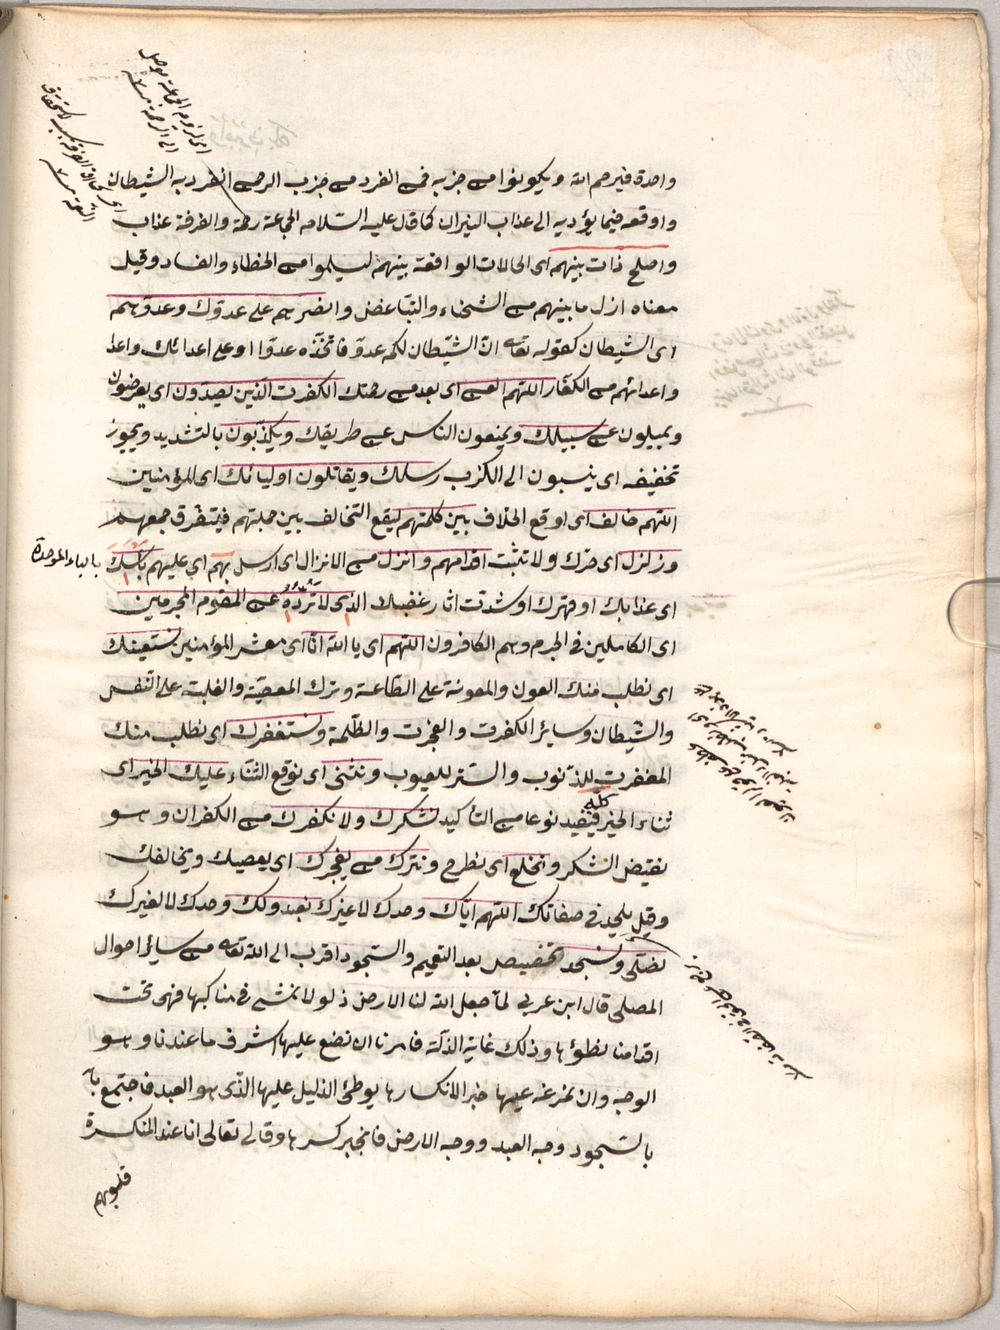 واحدة فيرحم الله ويكونوا من حزبه فمن انفرد من حزب الرحمن انفرد به الشيطان
واوقعه فيما يؤديه الى عذاب النيران كما قال عليه السلام الجماعة رحمة والفرقة عذاب
واصلح ذات بينهم اى الحالات الواقعة بينهم ليسلموا من الخطاء والفساد وقيل
معناه ازل ما بينهم من الشحناء والتباغض وانصرهم على عدوك وعدوهم
اى الشيطان كقوله تعالى ان الشيطان لكم عدو فاتخذوه عدوا او على اعدائك واعدا
واعدائهم من الكفار اللهم العن اى بعد من رحمتك الكفرة الذين يصدون اى يعرضون
ويميلون عن سبيلك ويمنعون الناس عن طريقك ويكذبون بالتشديد ويجوز
تخفيفه اى ينسبون الى الكذب رسلك ويقاتلون اوليائك اى المؤمنين
اللهم خالف اى اوقع الخلاف بين كلمتهم ليقع التخالف بين جملتهم فيتفرق جمعهم
وزلزل اى حرك ولا تثبت اقدامهم وانزل من الانزال اى ارسل بهم اي عليهم بأسك
بالباء الموحدة
اى عذابك او قهرك او شدت اثار غضبك الذى لا ترده عن القوم المجرمين
اى الكاملين فى الجرم وهم الكافرون اللهم اى يا الله انا اى معشر المؤمنين نستعينك
اى نطلب منك العون والمعونة على الطاعة وترك المعصية والغلبة على النفس
والشيطان وسائر الكفرت والفجرت والظلمة ونستغفرك اى نطلب منك
المغفرت للذنوب والستر للعيوب ونثنى اى نوقع الثناء عليك الخير اى
ثناء الخير كله فيفيد نوعا من التأكيد نشكرك ولا نكفرك من الكفران وهو
نقيض الشكر ونخلع اى نطرح ونترك من يفجرك اى يعصيك ويخالفك
وقيل يلحد فى صفاتك اللهم اياك وحدك لا غيرك نعبد ولك وحدك لا لغيرك
نصلى ونسجد تخصيص بعد التعميم والسجود اقرب الى الله تعالى من سائر احوال
المصلى قال ابن عربى لما جعل الله لنا الارض ذلولا نمشى فى مناكبها فهى تحت
اقدامنا نطؤها وذلك غاية الذلة فامرنا ان نضع عليها اشرف ما عندنا وهو
الوجه وان نمرغه عليها جبر الانكسارها يوطئ الذليل عليها الذى هو العبد فاجتمع با
بالسجود وجه العبد ووجه الارض فانجبر كسرها وقال تعالى انا عند المنكسرة
قلوبهم